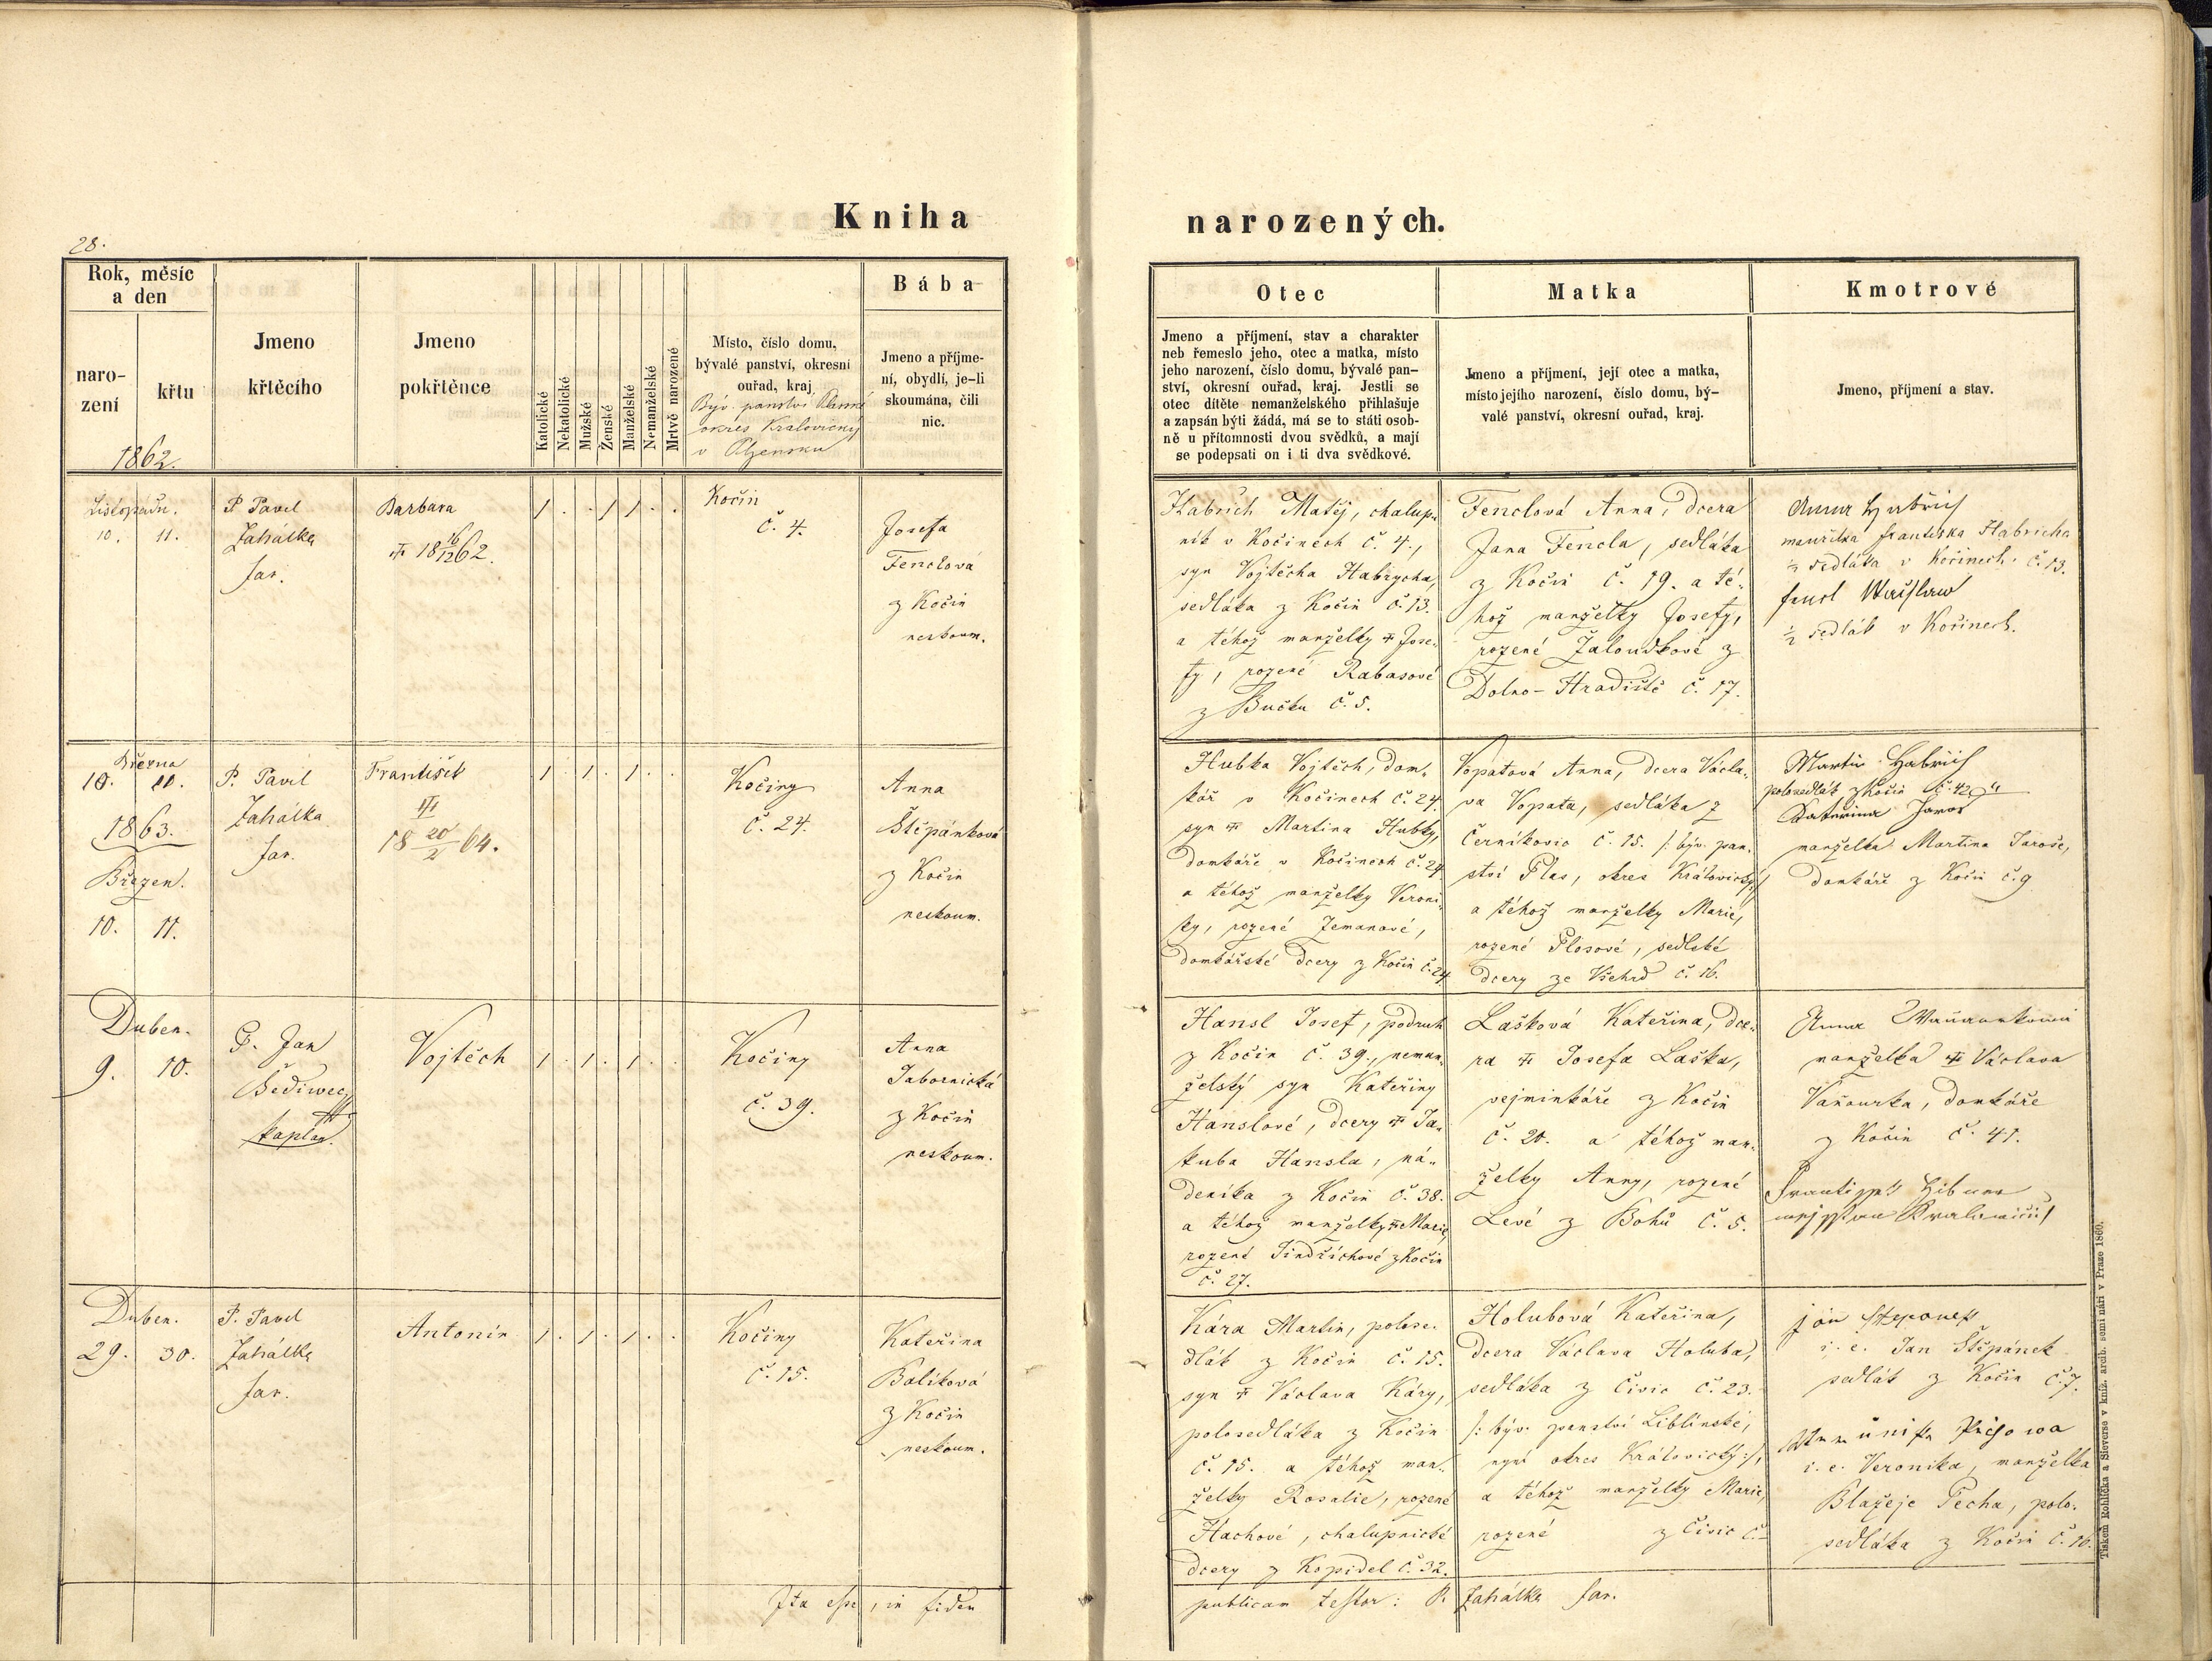 Kniha
narozených.
28.
Rok, měsíc
a den
naro-
zení
křtu
1862.
Jmeno
křtěcího
Jmeno
pokřtěnce
Katolické
Nekatolické
Mužské
Ženské
Manželské
Nemanželské
Mrtvě narozené
Místo, číslo domu,
bývalé panství, okresní
ouřad, kraj
Býv. panství
okres Kralovický
v Plzensku
Bába
Jmeno a příjme-
ní, obydlí, je-li
skoumána, čili
nic.
Otec
Jmeno a příjmení, stav a charakter
neb řemeslo jeho, otec a matka, místo
jeho narození, číslo domu, bývalé pan-
ství, okresní ouřad, kraj. Jestli se
otec dítěte nemanželského přihlašuje
a zapsán býti žádá, má se to státi osob-
ně u přítomnosti dvou svědků, a mají
se podepsati on i ti dva svědkové.
Matka
Jmeno a příjmení, její otec a matka,
místo jejího narození, číslo domu, bý-
valé panství, okresní ouřad, kraj.
Kmotrové
Jmeno, příjmení a stav.
Listopadu.
10. 11.
P. Pavel
Zahálka
far.
Barbara
18 16/12 62.
1 . . 1 1 . .
Kočin
č. 4.
Josefa
Fenclová
z Kočin
neskoum.
Habrich Matěj, chalup-
ník v Kočinech č. 4.,
syn Vojtěcha Habrycha,
sedláka z Kočin č. 13.
a téhož manželky Jose-
fy, rozené Rabasové
z Bučku č. 5.
Fenclová Anna, dcera
Jana Fencla, sedláka
z Kočin č. 19. a té-
hož manželky Josefy,
rozené Žaloudkové z
Dolno-Hradiště č. 17.
Anna Habřich
manželka Františka Habricha
1/2 sedláka v Kočinech. č. 13.
fencl Waislaw
1/2 sedlák v Kočinech.
Března
10. 11.
1863.
Březen.
10. 11.
P. Pavel
Zahálka
far.
František
18 20/2 64.
. 1 . 1 . 1 . .
Kočiny
č. 24.
Anna
Štěpánková
z Kočin
neskoum.
Hubka Vojtěch, dom-
kář v Kočinech č. 24.
syn Martina Hubky,
domkáře v Kočinech č. 24
a téhož manželky Veroni-
ky, rozené Zemanové,
domkářské dcery z Kočin č. 24
Vopatová Anna, dcera Václa-
va Vopata, sedláka z
Černíkovic č. 15. /: býv. pan-
ství Plas, okres Královický:/
a téhož manželky Marie,
rozené Plosové, sedlské
dcery ze Všehrd č. 16.
Martin Habřich
polosedlák z Kočin č. 42
Katerina Jaros
manželka Martina Jaroše,
domkáře z Kočin č. 9
Duben.
9. 10.
P. Jan
Šediwec
kaplan.
Vojtěch
1 . 1 . 1 . .
Kočiny
č. 39.
Anna
Jabornická
z Kočin
neskoum.
Hansl Josef, podruh
z Kočin č. 39., neman-
želský syn Kateřiny
Hanslové, dcery Ja-
kuba Hansla, ná-
deníka z Kočin č. 38.
a téhož manželky Marie,
rozené Jindřichové z Kočin
č. 27.
Lašková Kateřina, dce-
ra Josefa Laška,
vejminkáře z Kočin
č. 20. a téhož man-
želky Anny, rozené
Levé z Bohů č. 5.
Anna
manželka Václava
Vaňourka, domkáře
z Kočin č. 41.
Duben.
29. 30.
P. Pavel
Zahálka
far.
Antonín
1 . 1 . 1 . .
Kočiny
č. 15.
Kateřina
Balíková
z Kočin
neskoum.
Kára Martin, polose-
dlák z Kočin č. 15.
syn Václava Káry,
polosedláka z Kočin
č. 15. a téhož man-
želky Rosalie, rozené
Hachové, chalupnické
dcery z Kopidel č. 32.
Holubová Kateřina,
dcera Václava Holuba,
sedláka z Čivic č. 23.
/: býv. panství Liblinské,
nyní okres Královický:/,
a téhož manželky Marie,
rozené z Čivic č.
jan Stepanek
i. e. Jan Štěpánek
sedlák z Kočin č. 7.
i. e. Veronika, manželka
Blažeje Pecha, polo-
sedláka z Kočin č. 16.
Ita esse, in fidem
publicam testor: P. Zahálka far.
Tiskem Rohlíčka a Sieverse v kníž. arcib. semináři v Praze 1860.